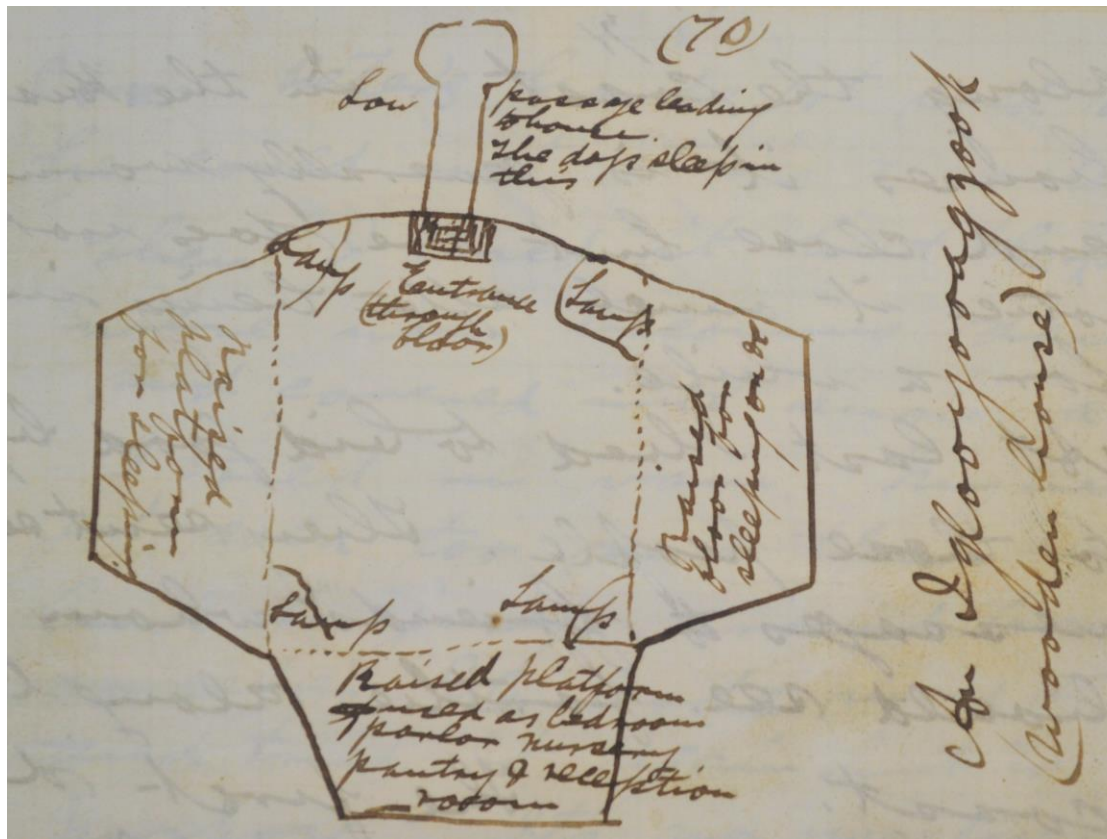 (70)
Low
passage leading
to house.
The dogs sleep in
this
Lamp
Entrance
(through
floor)
Lamp
raised
platform
for sleeping
raised
floor for
sleeping on &c
Lamp
Lamp
Raised platform
used as bedroom
parlor nursery
pantry & reception
rooom
An Iglooyooagzook
(wooden house)